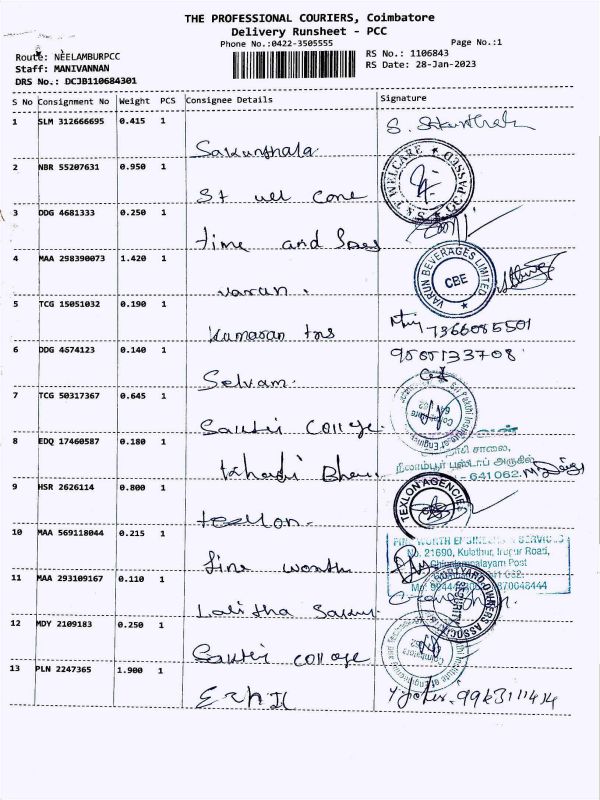 THE PROFESSIONAL COURIERS, Coimbatore
Delivery Runsheet - PCC
Phone No.:0422-3505555
Page No.:1
Route: NEELAMBURPCC
RS No.: 1106843
Staff: MANIVANNAN
RS Date: 28-Jan-2023
DRS No.: DCJB110684301
S No Consignment No Weight PCS Consignee Details Signature
1 SLM 312666695 0.415 1
Sakunthala
2 NBR 55207631 0.950 1
St well care
WELCARE PASSED
3 DDG 4681333 0.250 1
time and
4 MAA 298390073 1.420 1
varun.
VARUN BEVERAGES LIMITED
CBE
5 TCG 15051032 0.190 1
Kumaran tms
7366085501
6 DDG 4674123 0.140 1
9500133708
Selvam.
7 TCG 50317367 0.645 1
Sakthi College
8 EDQ 17460587 0.180 1
சாலை,
நீலாம்பூர் பஸ்டாப் அருகில்
- 641062.
9 HSR 2626114 0.800 1
texlon
TEXLON AGENCIES
10 MAA 569118044 0.215 1
fine worth
No. 21690, Kulathur, Irugur Road,
Post
11 MAA 293109167 0.110 1
Lalitha
12 MDY 2109183 0.250 1
Sakthi college
Coimbatore
13 PLN 2247365 1.900 1
9963111414